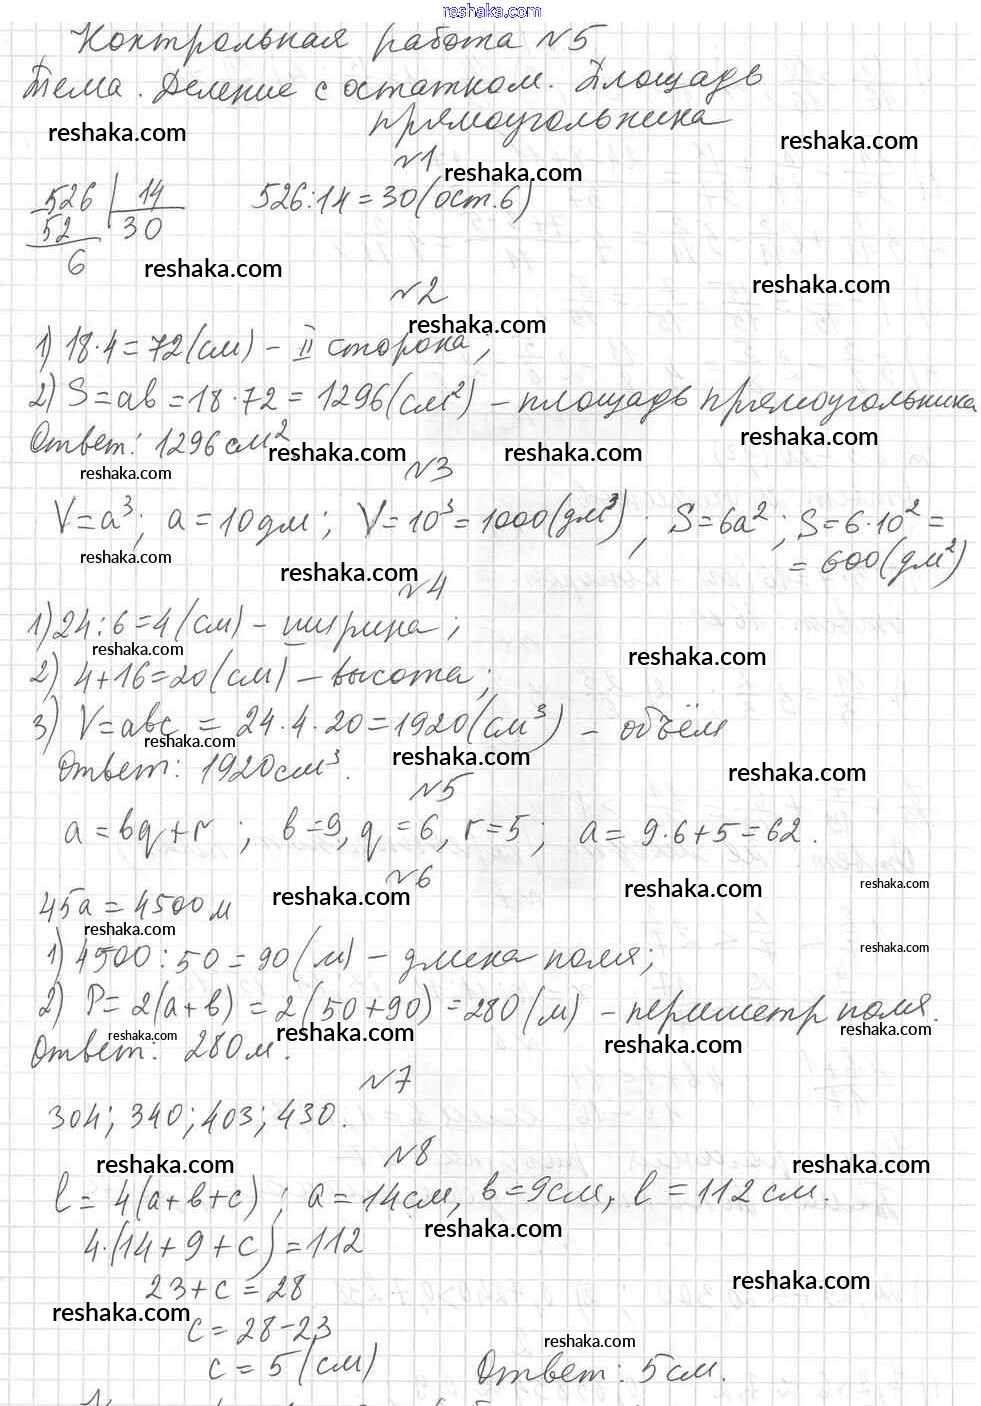 reshaka.com
Контрольная работа №5
Тема. Деление с остатком. Площадь
прямоугольника
reshaka.com
reshaka.com
№1
reshaka.com
526 | 14
52 | 30
6
526:14=30(ост.6)
reshaka.com
reshaka.com
№2
reshaka.com
1) 18·4=72(см) – II сторона;
2) S=ab=18·72=1296(см²) – площадь прямоугольника
Ответ: 1296см²
reshaka.com
reshaka.com
reshaka.com
reshaka.com
№3
V=a³; a=10дм; V=10³=1000(дм³); S=6a²; S=6·10²=
=600(дм²)
reshaka.com
reshaka.com
№4
1) 24:6=4(см) – ширина;
reshaka.com
reshaka.com
2) 4+16=20(см) – высота;
3) V=abc=24·4·20=1920(см³) – объём
reshaka.com
reshaka.com
Ответ: 1920см³.
reshaka.com
№5
a=bq+r; b=9, q=6, r=5; a=9·6+5=62.
№6
reshaka.com
reshaka.com
reshaka.com
45а=4500м
reshaka.com
reshaka.com
1) 4500:50=90(м) – длина поля;
2) P=2(a+b)=2(50+90)=280(м) – периметр поля.
reshaka.com
reshaka.com
reshaka.com
reshaka.com
Ответ: 280м.
№7
304; 340; 403; 430.
№8
reshaka.com
reshaka.com
l=4(a+b+c); a=14см, b=9см, l=112см.
reshaka.com
4·(14+9+c)=112
23+c=28
reshaka.com
reshaka.com
c=28-23
reshaka.com
c=5(см)
Ответ: 5см.